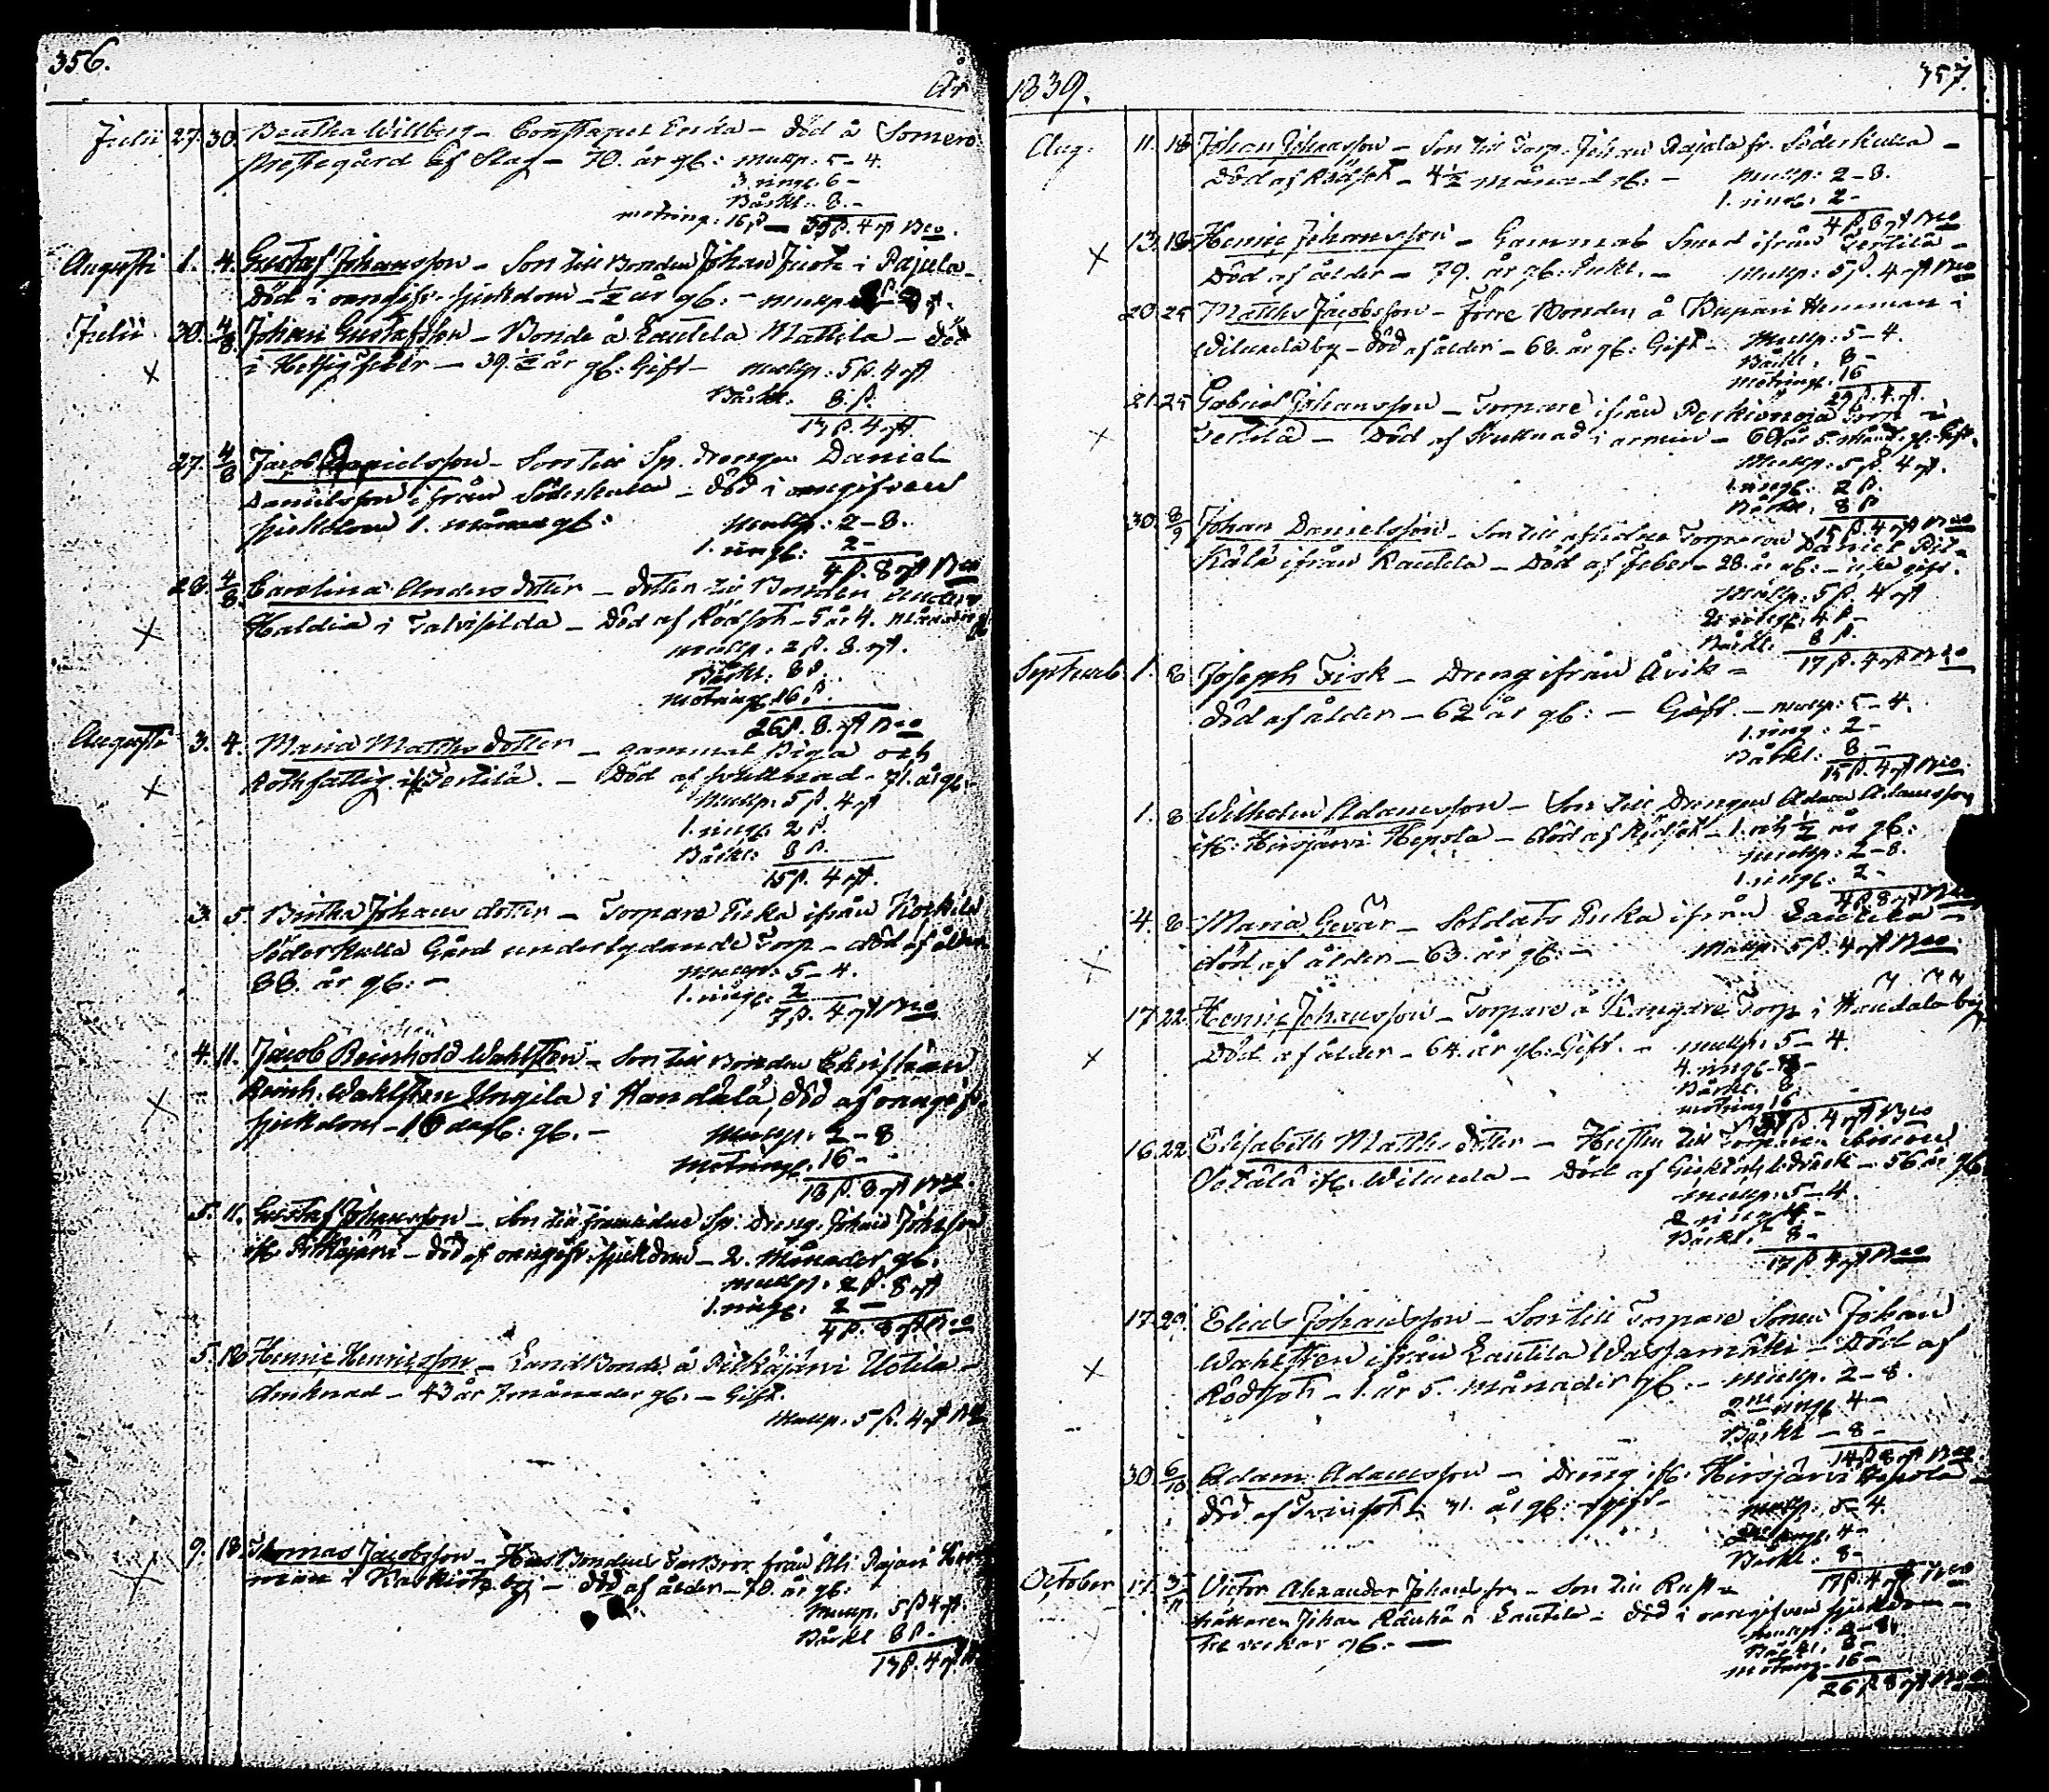 356.
År
Julii 27. 30. Beatha Willberg – Constapel Enka – död å Somero
prestegård af Slag – 70. år gl: mullp: 5 – 4.
3. ringn. 6 –
Bårkl: 8. –
motring: 16 β – 35 β. 4 rst Bco.
Augusti 1. 4. Gustaf Johansson – Son till Bonden Johan Juota i Pajula –
Död i oangifv. sjukdom – ½ år gl: – mullp.
Julii 30. 4/8 Johan Gustafsson – Bonde å Lautela Mattila – död
i Hetsig feber – 39 ½ år gl: Gift – mullp: 5 β. 4 rst
Bårkl. 8. β.
13 β. 4 rst
27. 4/8 Jacob Danielsson – Son till Sp. drengen Daniel
Danielsson ifrån Söderkulla – död i oangifven
sjukdom 1. månad gl:
mullp: 2 – 8.
1. ringl: 2 –
4 β. 8 rst Bco
28. 4/8 Carolina Anders dotter – dotter till Bonden Anders
Haldia i Talvisilda – Död af Rödsot – 5 år 4. månader gl
mullp. 2 β. 8. rst.
Bårkl: 8 β.
Motringl. 16 β.
26 β. 8. rst Bco
Augusti 3. 4. Maria Matths dotter – gammal Piga och
Rothfattig i Tertilä. – Död af svullnad – 71. år gl. –
Mullp. 5 β. 4 rst
1. ringl. 2 β.
Bårkl: 8 β.
15 β. 4 rst.
3. 5. Birtha Johans dotter – Torpare Enka ifrån Koskila
Söderkulla Gård underlydande Torp – död af ålder
88. år gl: –
Mullp: 5 – 4.
1. ringl: 2
7 β. 4 rst Bco
4. 11. Jacob Reinhold Wahlsten – Son till Bonden Christian
Reinh. Wahlsten Ungila i Kandala, död af oangifv.
sjukdom – 10 dag: gl. –
Mullp. 2 – 8
Motringl. 16 –
18 β. 8 rst Bco.
5. 11. Gustaf Johansson – Son till Sp: Dreng. Johan Johansson
ifr. Pitkäjärvi – död af oangifv. sjukdom – 2. Månader gl.
mullp. 2 β. 8 rst
1. ringl: 2 –
4 β. 8 rst Bco
5. 18 Henric Henricsson – Landbonde å Pitkäjärvi Uotila –
43 år 7 månader gl. – Gift.
Mullp. 5 β. 4 rst Bco
9. 18 Thomas Jacobsson – Husbondens Farbror från Ali Pajari Hem
man i Kaskisto by – död af ålder – 78. år gl:
Mullp. 5 β 4 rst.
Bårkl 8 β –
13 β. 4 rst
1839.
357.
Aug. 11. 18 Johan Johansson – Son till Torp. Johan Rajala fr. Söderkulla –
Död af Rödsot – 4 ½ Månad gl: –
Mullp: 2 – 8.
1. ringl. 2 –
4 β. 8 rst Bco
13. 18 Henric Johansson – Gammal Smed ifrån Tertilä –
Död af ålder – 79. år gl: Enkl. – Mullp: 5 β. 4 rst Bco
20. 25 Matths Jacobsson – Förre Bonden å Kupari Hemman i
Wiluxela by – död af ålder – 68. år gl: Gift – Mullp: 5 – 4.
Bårkl. 8 –
Motringl. 16
29 β. 4 rst.
21. 25 Gabriel Johansson – Torpare ifrån Perkionoja Torp i
Tertilä – Död af Svullnad i armen – 60 år 5. månad. gl. Gift.
Mullp: 5 β. 4 rst.
1. ringl: 2 β.
Bårkl. 8 β
15 β. 4 rst Bco
30. 8/9 Johan Danielsson – Son till aflidne Torparen Daniel
ifrån Rautela – Död af Feber – 28. år gl: – icke gift.
Mullp: 5 β. 4 rst
2 ringl. 4 β –
Bårkl. 8 β.
17 β. 4 rst Bco
Septemb. 1. 8 Joseph Fisk – Dreng ifrån Åvik –
död af ålder – 62 år gl: – Gift. – mullp: 5 – 4.
1. ring: 2 –
Bårkl: 8 –
15 β. 4 rst Bco.
1. 8 Wilhelm Adamsson – Son till Drengen Adam Adamsson
ifr: Hirsjärvi Hepola – död af Rödsot – 1. och ½ år gl:
mullp: 2 – 8.
1. ringl: 2 –
4 β. 8 rst Bco
4. 8 Maria Gevär – Soldats Enka ifrån Lautela –
död af ålder – 63. år gl: – Mullp: 5 β. 4 rst Bco.
17. 22. Henric Johansson – Torpare å Kangare Torp i Kandala by
Död af ålder – 64. år gl: Gift. – mullp: 5 – 4.
4. ringl. 8 –
Bårkl. 8.
motring 16
37 β. 4 rst Bco
16. 22. Elisabeth Matths dotter – Hustru till Torparen Simon
ifr. Wiluxela – Död af – 56 år gl.
Mullp: 5 – 4.
2 ringl. 4 –
Bårkl. 8 –
17 β. 4 rst Bco
17. 29. Elias Johansson – Son till Torpare Sonen Johan
Wahlsten ifrån Lautela Wassamäki – Död af
Rödsot – 1. år 5. Månader gl: – Mullp. 2 – 8.
2ne ringl 4 –
Bårkl – 8 –
14 β 8 rst Bco
30. 6/10 Adam Adamsson – Dreng ifr: Hirsjärvi Hepola –
död af Tvinsot – 31. år gl: – gift – Mullp: 5 – 4.
2ne ringl. 4 –
Bårkl. 8 –
17 β. 4 rst Bco
October 17. 3/11 Victor Alexander Johansson – Son till Rust
hållaren Johan Rauhå i Lautela – död i oangifven sjukdom –
Tre veckor gl. –
mullp: 2 – 8.
Bårkl. 8 –
motring. 16 –
26 β 8 rst Bco